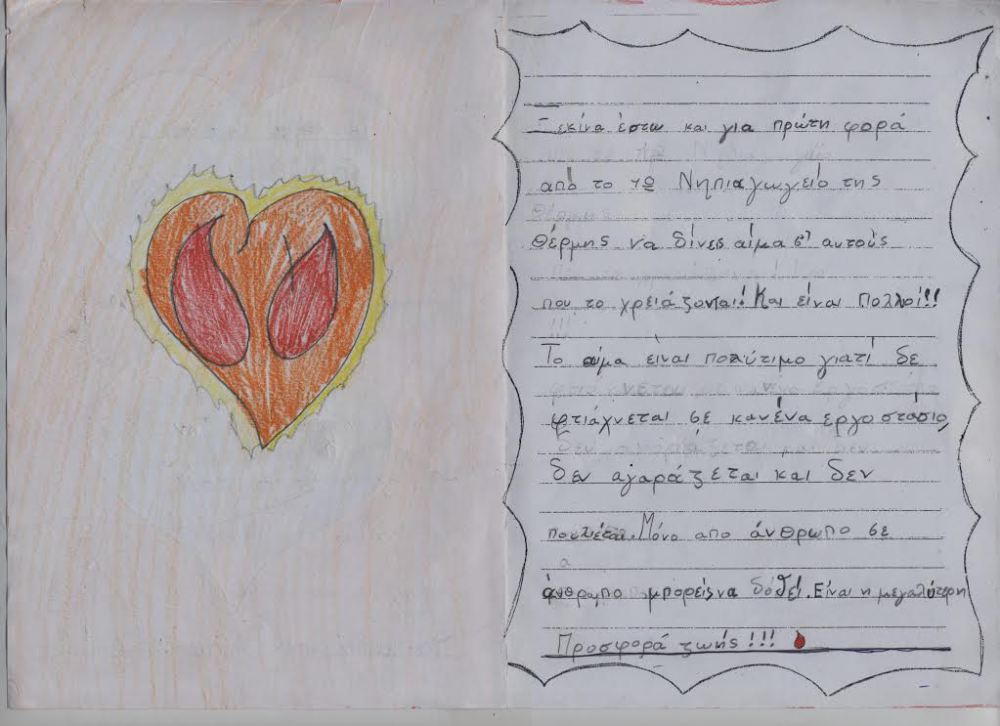 Ξεκίνα έστω και για πρώτη φορά
από το 4ο Νηπιαγωγείο της
Θέρμης να δίνεις αίμα σ' αυτούς
που το χρειάζονται! Και είναι Πολλοί!!
Το αίμα είναι πολύτιμο γιατί δε
φτιάχνεται σε κανένα εργοστάσιο,
δεν αγαράζεται και δεν
πουλιέται. Μόνο απο άνθρωπο σε
άνθρωπο μπορείς να δοθεί. Είναι η μεγαλύτερη
Προσφορά ζωής!!!